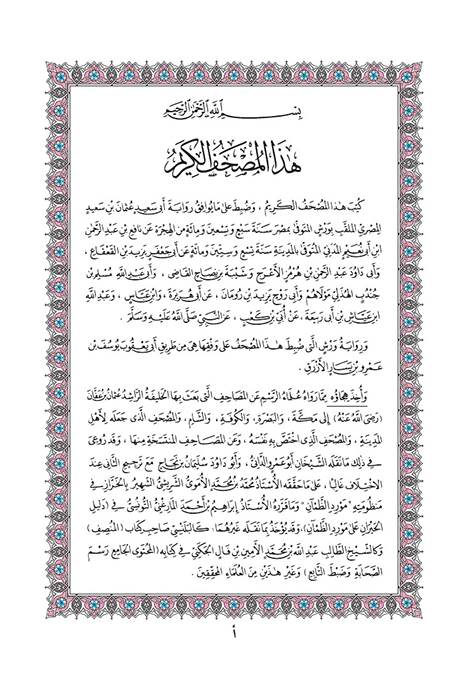 بِسْمِ اللَّهِ الرَّحْمَنِ الرَّحِيمِ
هَذَا المُصْحَفُ الكَرِيمُ
كُتِبَ هَذَا المُصْحَفُ الكَرِيمُ ، وَضُبِطَ عَلَى مَا يُوَافِقُ رِوَايَةَ أَبِي سَعِيدٍ عُثْمَانَ بْنِ سَعِيدٍ
المِصْرِيِّ المُلَقَّبِ بِوَرْشٍ المُتَوَفَّى بِمِصْرَ سَنَةَ سَبْعٍ وَتِسْعِينَ وَمِائَةٍ مِنَ الهِجْرَةِ عَنْ نَافِعِ بْنِ عَبْدِ الرَّحْمَنِ
ابْنِ أَبِي نُعَيْمٍ المَدَنِيِّ المُتَوَفَّى بِالمَدِينَةِ سَنَةَ تِسْعٍ وَسِتِّينَ وَمِائَةٍ عَنْ أَبِي جَعْفَرٍ يَزِيدَ بْنِ القَعْقَاعِ ،
وَأَبِي دَاوُدَ عَبْدِ الرَّحْمَنِ بْنِ هُرْمُزَ الأَعْرَجِ وَشَيْبَةَ بْنِ نِصَاحٍ القَاضِي ، وَأَبِي عَبْدِ اللَّهِ مُسْلِمِ بْنِ
جُنْدُبٍ الهُذَلِيِّ مَوْلَاهُمْ وَأَبِي رَوْحٍ يَزِيدَ بْنِ رُومَانَ ، عَنْ أَبِي هُرَيْرَةَ ، وَابْنِ عَبَّاسٍ ، وَعَبْدِ اللَّهِ
ابْنِ عَيَّاشِ بْنِ أَبِي رَبِيعَةَ ، عَنْ أُبَيِّ بْنِ كَعْبٍ ، عَنِ النَّبِيِّ صَلَّى اللَّهُ عَلَيْهِ وَسَلَّمَ .
وَرِوَايَةُ وَرْشٍ الَّتِي ضُبِطَ هَذَا المُصْحَفُ عَلَى وَفْقِهَا هِيَ مِنْ طَرِيقِ أَبِي يَعْقُوبَ يُوسُفَ بْنِ
عَمْرِو بْنِ يَسَارٍ الأَزْرَقِ .
وَأُخِذَ هِجَاؤُهُ مِمَّا رَوَاهُ عُلَمَاءُ الرَّسْمِ عَنِ المَصَاحِفِ الَّتِي بَعَثَ بِهَا الخَلِيفَةُ الرَّاشِدُ عُثْمَانُ بْنُ عَفَّانَ
(رَضِيَ اللَّهُ عَنْهُ) إِلَى مَكَّةَ ، وَالبَصْرَةِ ، وَالكُوفَةِ ، وَالشَّامِ ، وَالمُصْحَفِ الَّذِي جَعَلَهُ لِأَهْلِ
المَدِينَةِ ، وَالمُصْحَفِ الَّذِي اخْتَصَّ بِهِ نَفْسَهُ ، وَعَنِ المَصَاحِفِ المُنْتَسَخَةِ مِنْهَا ، وَقَدْ رُوعِيَ
فِي ذَلِكَ مَا نَقَلَهُ الشَّيْخَانِ أَبُو عَمْرٍو الدَّانِيُّ ، وَأَبُو دَاوُدَ سُلَيْمَانُ بْنُ نَجَاحٍ مَعَ تَرْجِيحِ الثَّانِي عِنْدَ
الِاخْتِلَافِ غَالِبًا ، عَلَى مَا حَقَّقَهُ الأُسْتَاذُ مُحَمَّدُ بْنُ مُحَمَّدٍ الأُمَوِيُّ الشَّرِيشِيُّ الشَّهِيرُ بِالخَرَّازِ فِي
مَنْظُومَتِهِ "مَوْرِدِ الظَّمْآنِ" وَمَا قَرَّرَهُ الأُسْتَاذُ إِبْرَاهِيمُ بْنُ أَحْمَدَ المَارِغْنِيُّ التُّونُسِيُّ فِي (دَلِيلِ
الحَيْرَانِ عَلَى مَوْرِدِ الظَّمْآنِ). وَقَدْ يُؤْخَذُ بِمَا نَقَلَهُ غَيْرُهُمَا ، كَالبَلَنْسِيِّ صَاحِبِ كِتَابِ (المُنْصِفِ)
وَكَالشَّيْخِ الطَّالِبِ عَبْدِ اللَّهِ بْنِ مُحَمَّدٍ الأَمِينِ بْنِ فَالٍ الجَكَنِيِّ فِي كِتَابِهِ (المُحْتَوَى الجَامِعِ رَسْمَ
الصَّحَابَةِ وَضَبْطَ التَّابِعِ) وَغَيْرِ هَذَيْنِ مِنَ العُلَمَاءِ المُحَقِّقِينَ .
أ